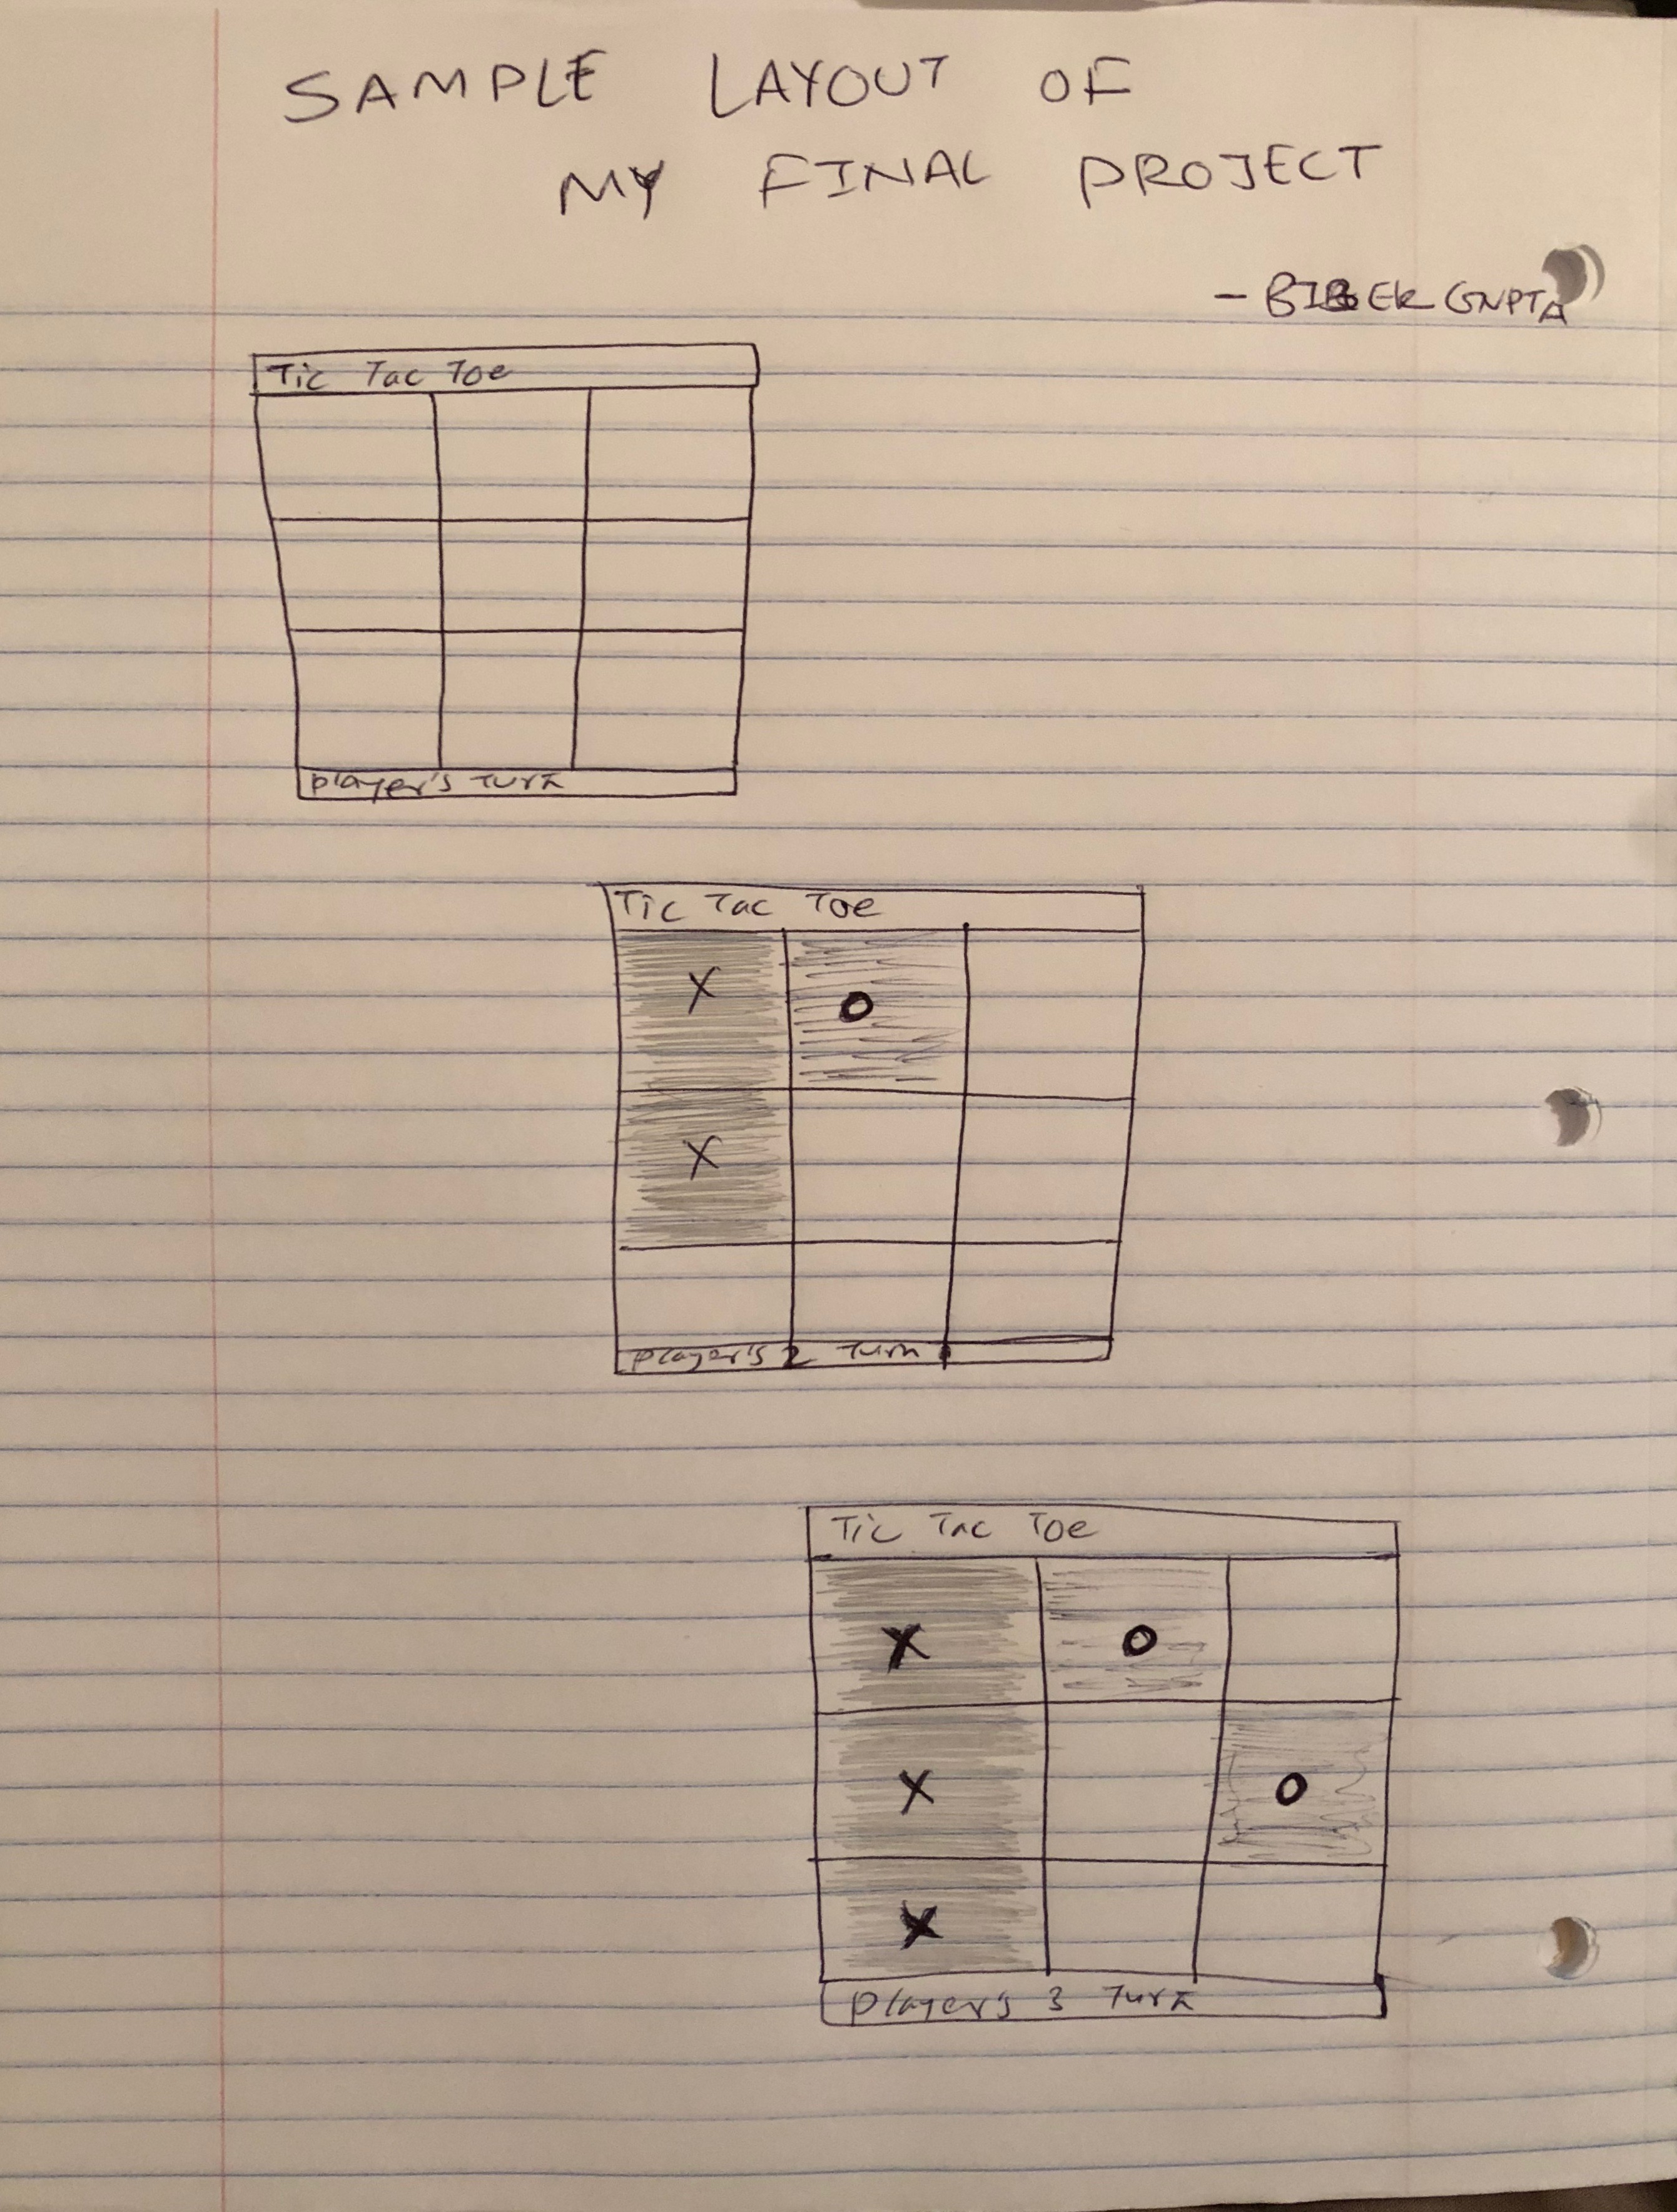 SAMPLE LAYOUT OF
MY FINAL PROJECT
- BIBEK GUPTA
Tic Tac Toe
player's turn
Tic Tac Toe
X O
X
player's 2 turn
Tic Tac Toe
X O
X O
X
player's 3 Turn